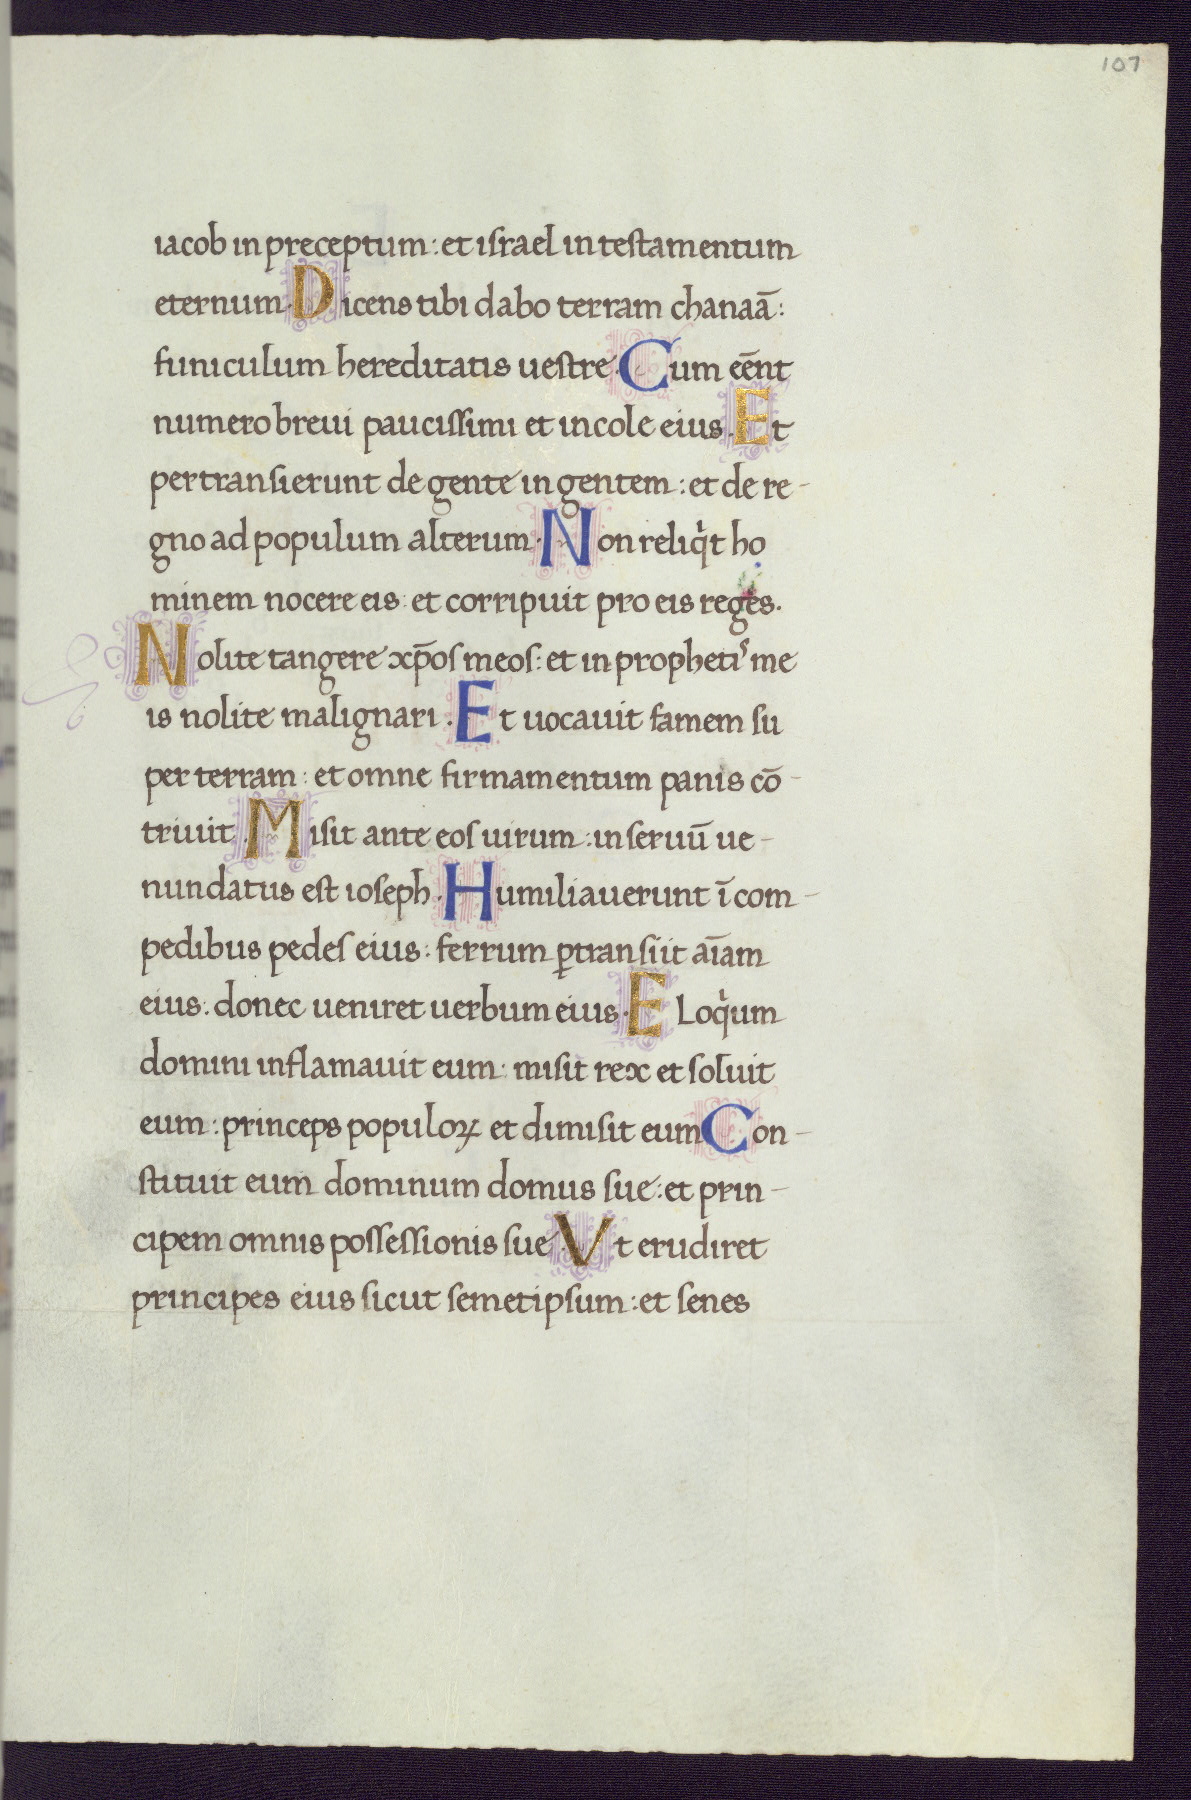 107
iacob in preceptum: et israel in testamentum
eternum. Dicens tibi dabo terram chanaā:
funiculum hereditatis uestre. Cum eēnt
numero breui paucissimi et incole eius. Et
pertransierunt de gente in gentem: et de re-
gno ad populum alterum. Non reliq̇t ho
minem nocere eis: et corripuit pro eis reges.
Nolite tangere xp̄os meos: et in prophetis me
is nolite malignari. Et uocauit famem su
per terram: et omne firmamentum panis cō-
triuit. Misit ante eos uirum: in seruū ue-
nundatus est ioseph. Humiliauerunt ī com-
pedibus pedes eius: ferrum ꝑtransiit aīam
eius: donec ueniret uerbum eius. Eloq̇um
domini inflamauit eum: misit rex et soluit
eum: princeps populoꝝ et dimisit eum Con-
stituit eum dominum domus sue: et prin-
cipem omnis possessionis sue. Vt erudiret
principes eius sicut semetipsum: et senes